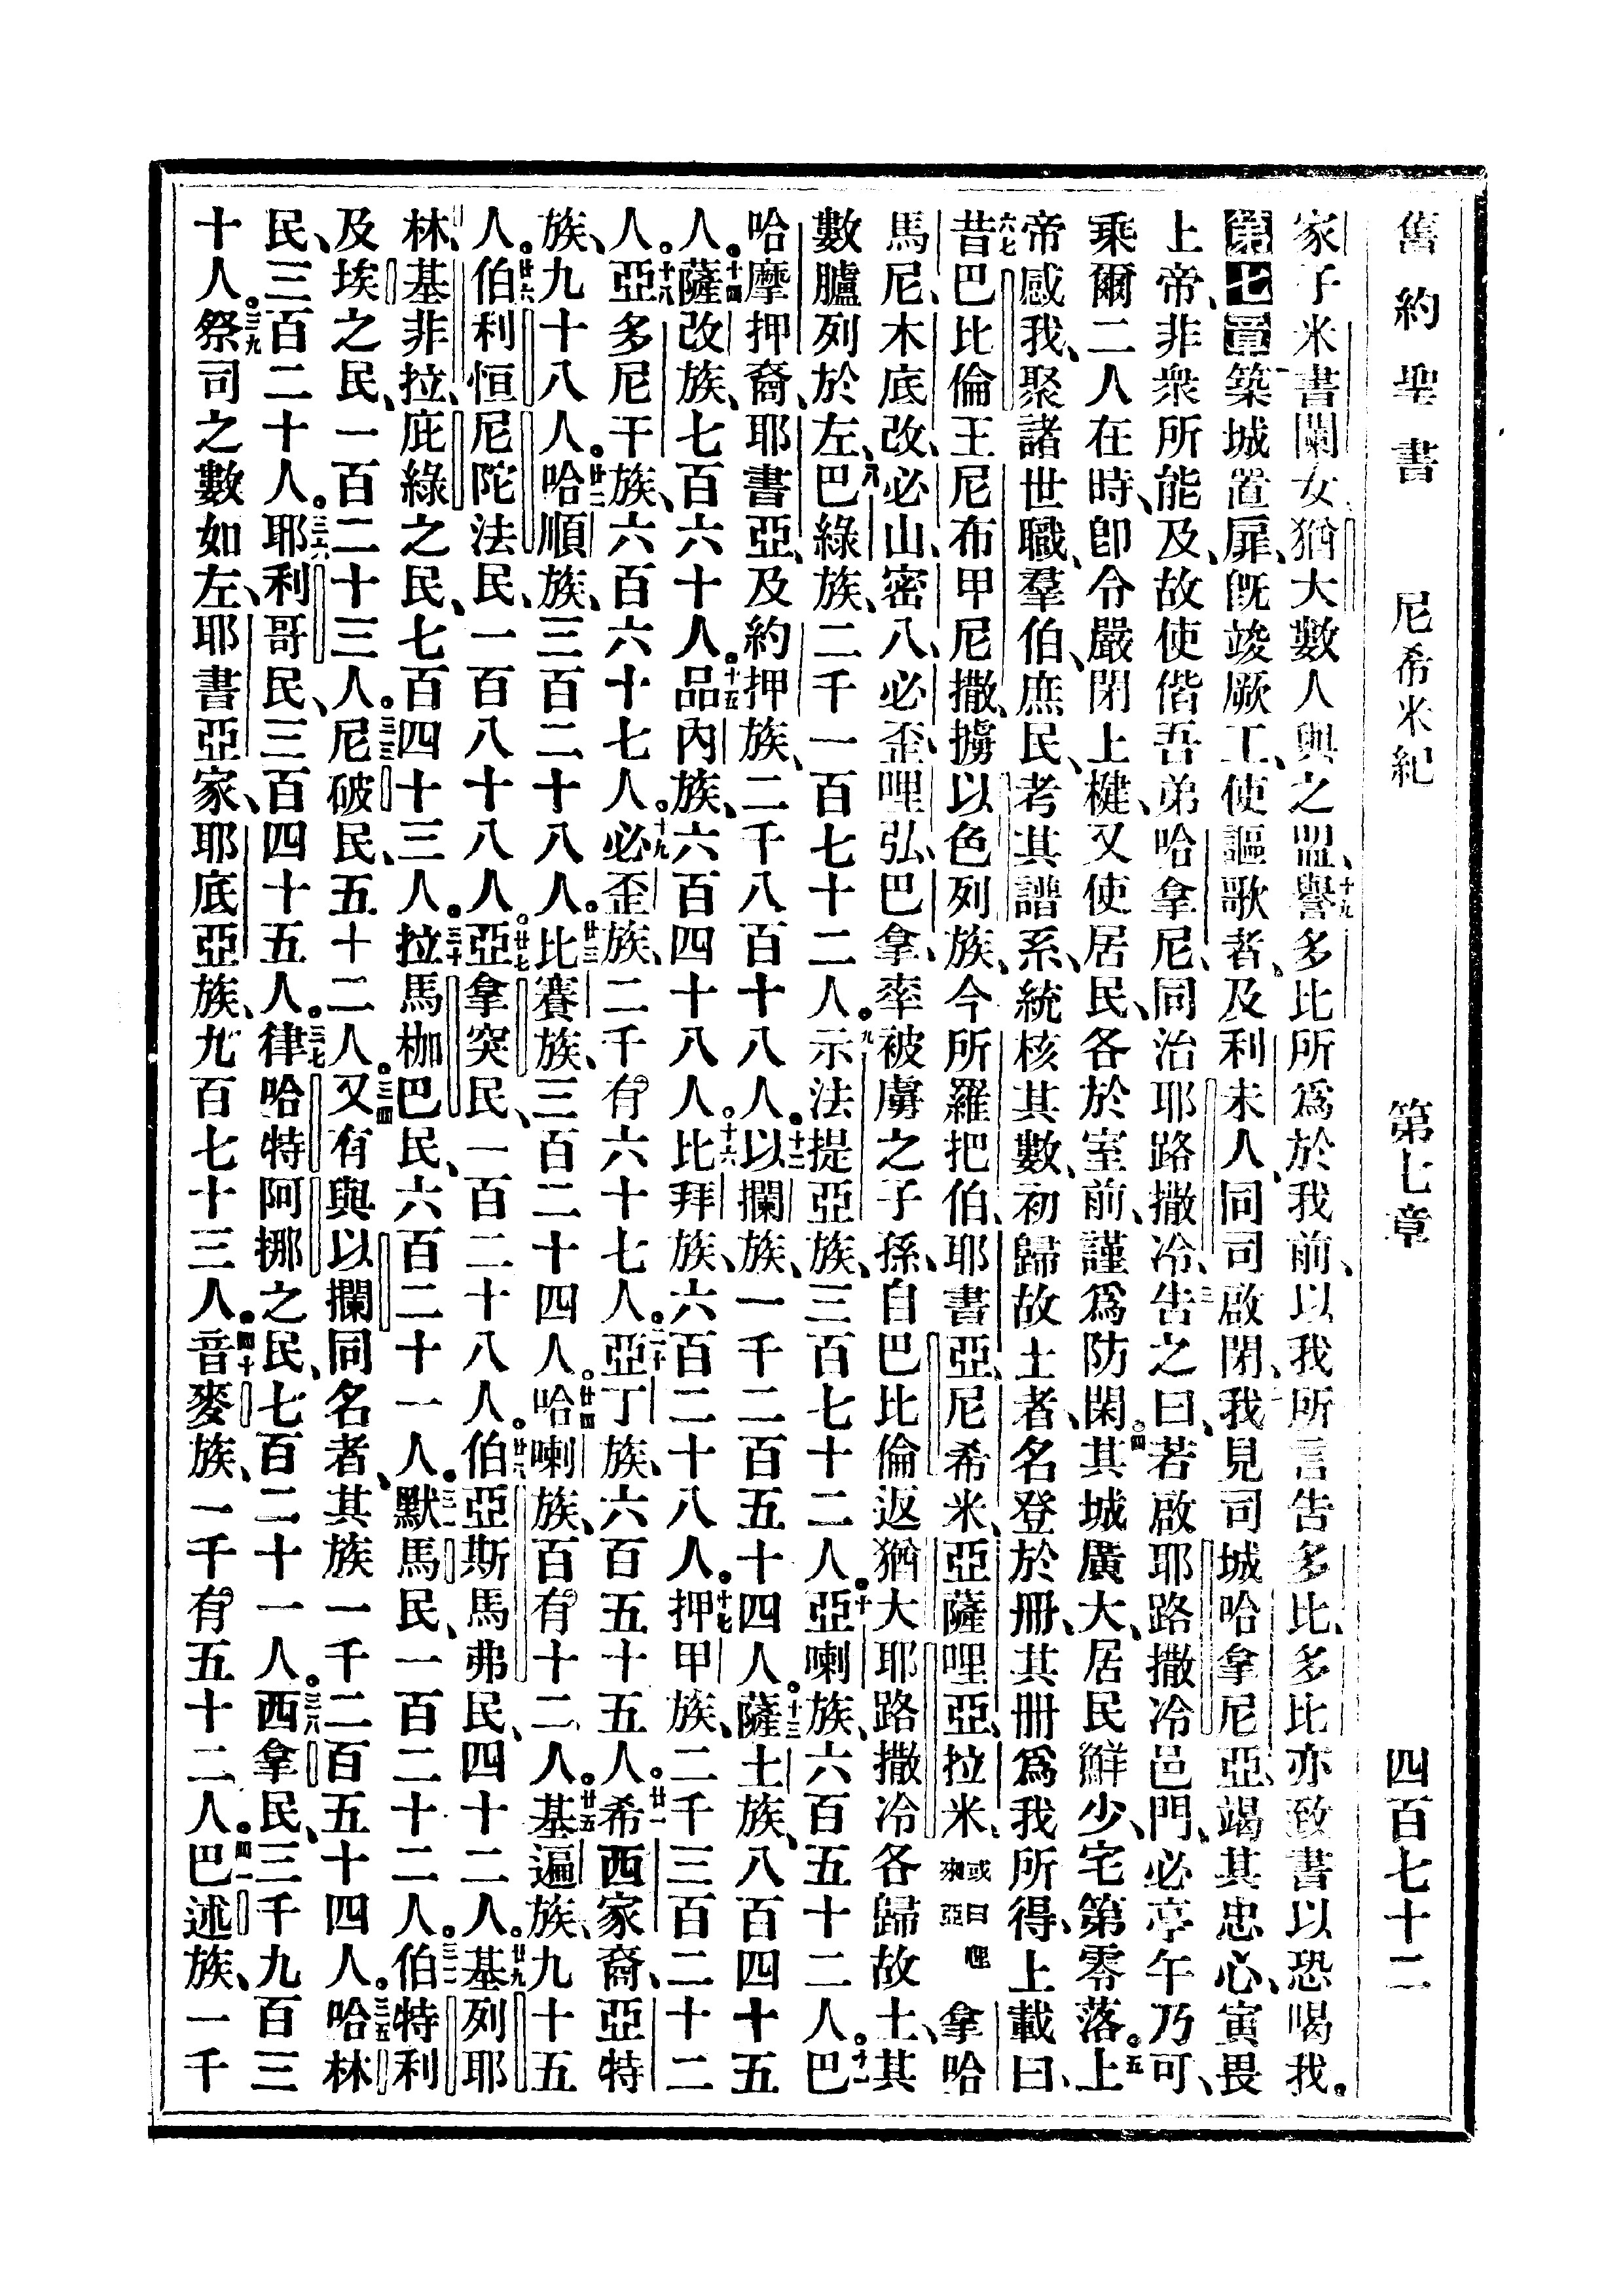 舊約聖書 尼希米紀 第七章 四百七十二
家子米書闌女猶大數人與之盟、十九譽多比所爲於我前、以我所言告多比、多比亦致書以恐喝我。
第七章築城置扉、旣竣厥工、使謳歌者、及利未人、同司啟閉、二我見司城哈拿尼亞、竭其忠心、寅畏
上帝、非衆所能及、故使偕吾弟哈拿尼、同治耶路撒冷、三告之曰、若啟耶路撒冷邑門、必亭午乃可、
乘爾二人在時、卽令嚴閉上楗、又使居民、各於室前、謹爲防閑。四其城廣大、居民鮮少、宅第零落。五上
帝感我、聚諸世職、羣伯、庶民、考其譜系、統核其數、初歸故土者、名登於册、其册爲我所得、上載曰、
六七昔巴比倫王尼布甲尼撒、擄以色列族、今所羅把伯、耶書亞、尼希米、亞薩哩亞、拉米、或曰哩來亞拿哈
馬尼、木底改、必山、密八、必歪、哩弘、巴拿、率被虜之子孫、自巴比倫返猶大耶路撒冷各歸故土、其
數臚列於左、八巴綠族、二千一百七十二人。九示法提亞族、三百七十二人。十亞喇族、六百五十二人。十一巴
哈摩押裔、耶書亞、及約押族、二千八百十八人。十二以攔族、一千二百五十四人。十三薩土族、八百四十五
人。十四薩改族、七百六十人。十五品內族、六百四十八人。十六比拜族、六百二十八人。十七押甲族、二千三百二十二
人。十八亞多尼干族、六百六十七人。十九必歪族、二千有六十七人。二十亞丁族、六百五十五人。廿一希西家裔、亞特
族、九十八人。廿二哈順族、三百二十八人。廿三比賽族、三百二十四人。廿四哈喇族、百有十二人。廿五基遍族、九十五
人。廿六伯利恒尼陀法民、一百八十八人。廿七亞拿突民、一百二十八人。廿八伯亞斯馬弗民、四十二人。廿九基列耶
林、基非拉、庇綠之民、七百四十三人。三十拉馬枷巴民、六百二十一人。三一默馬民、一百二十二人。三二伯特利
及埃之民、一百二十三人。三三尼破民、五十二人。三四又有與以攔同名者、其族一千二百五十四人。三五哈林
民、三百二十人。三六耶利哥民、三百四十五人。三七律哈特阿挪之民、七百二十一人。三八西拿民、三千九百三
十人。三九祭司之數如左、耶書亞家、耶底亞族、九百七十三人。四十音麥族、一千有五十二人。四一巴述族、一千